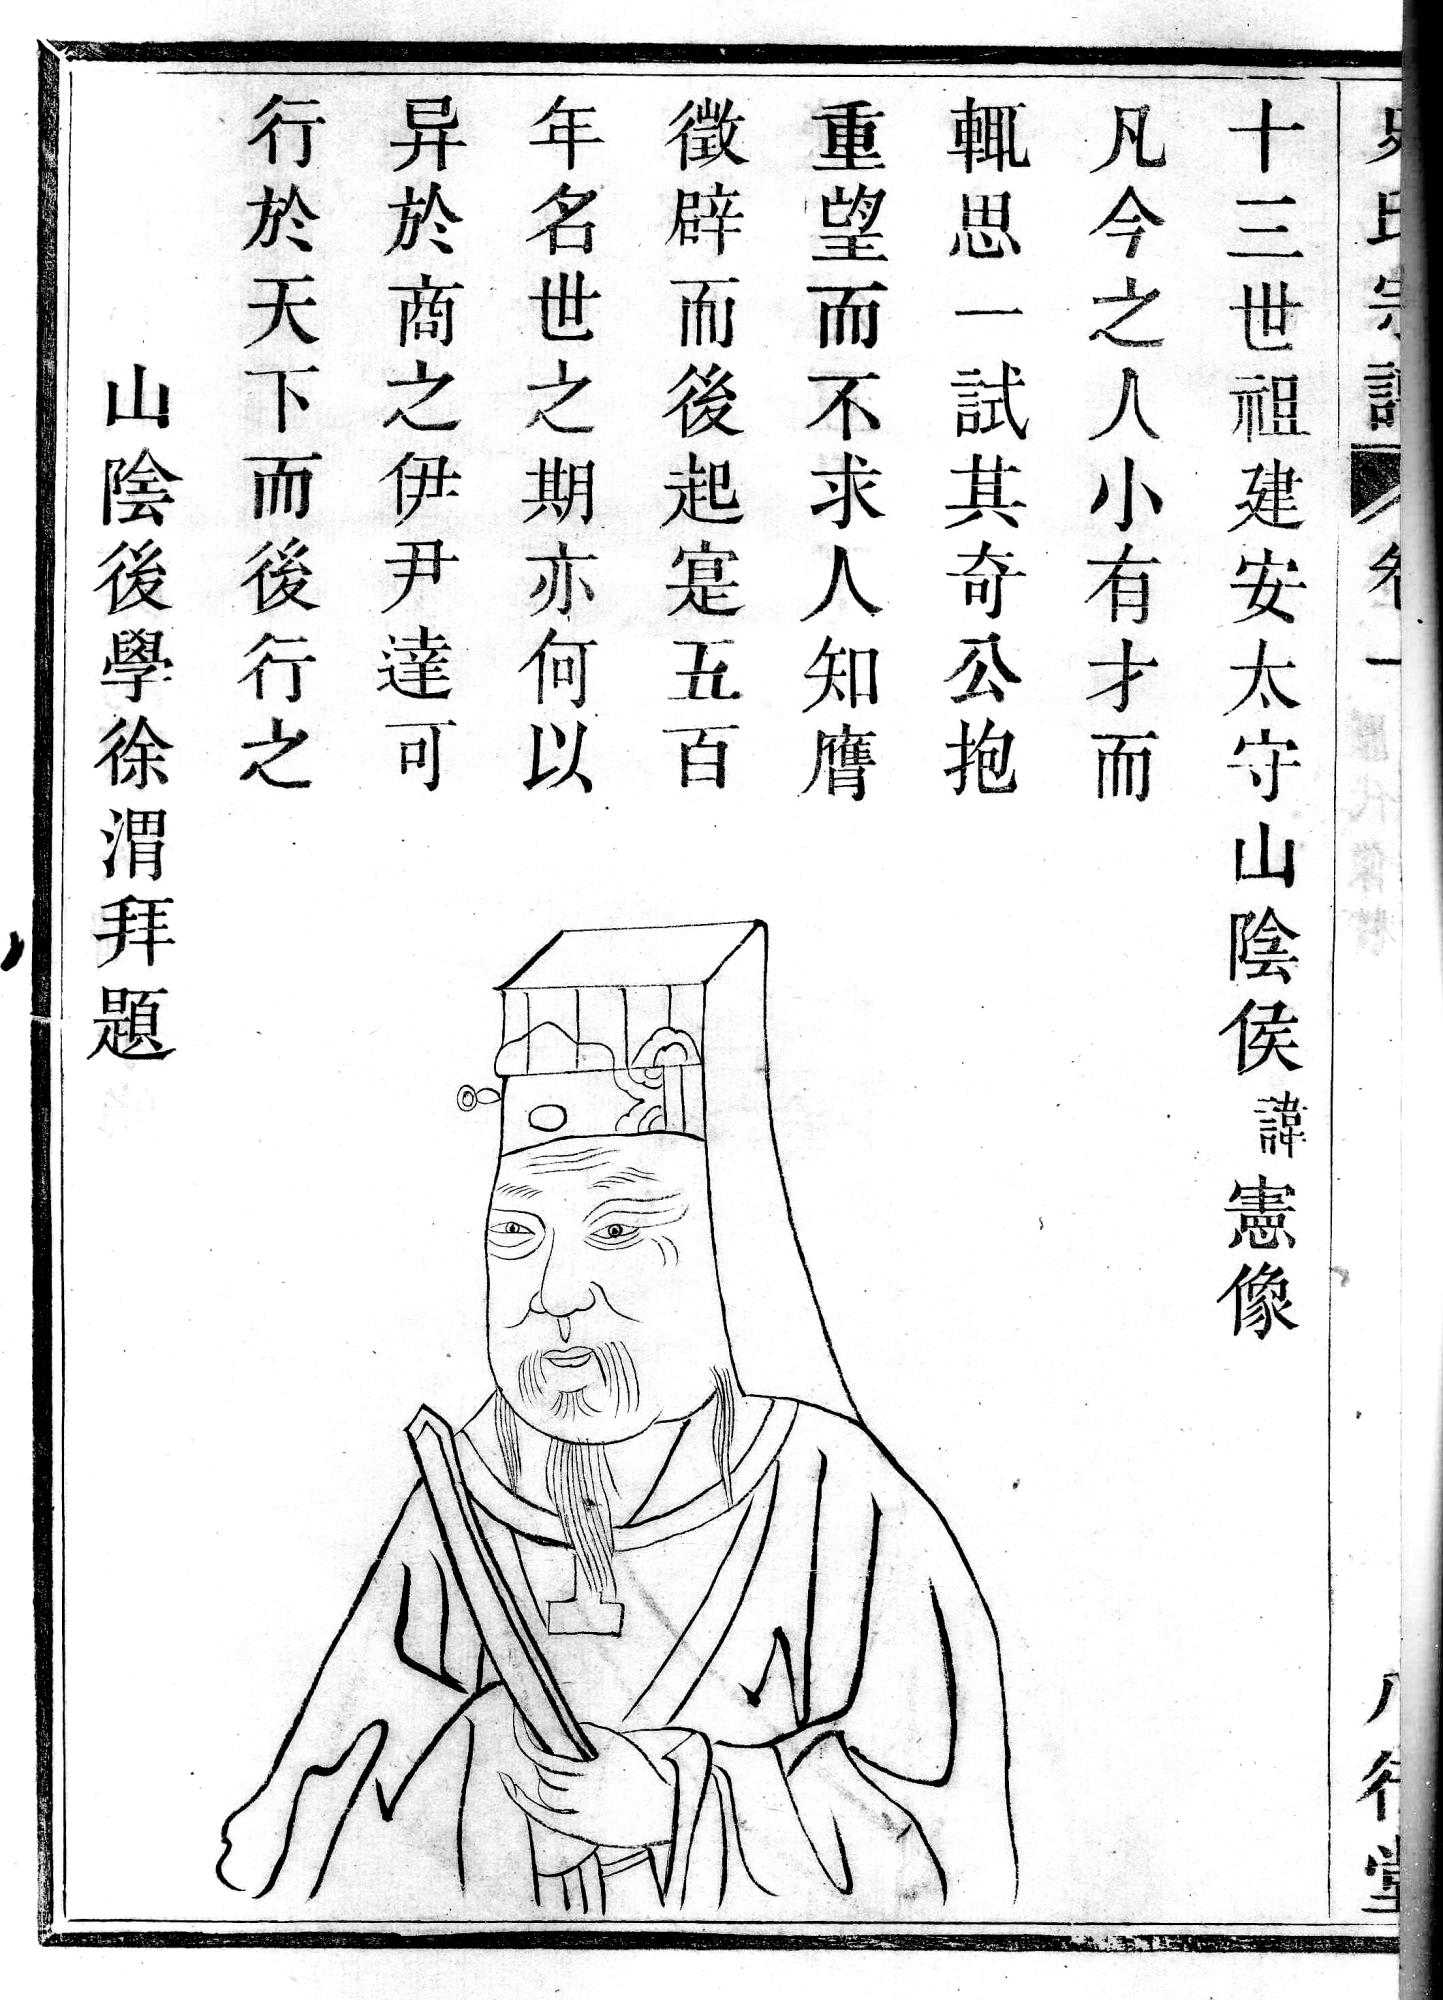 史氏宗譜 卷一 八行堂
十三世祖建安太守山陰侯諱憲像
凡今之人小有才而
輒思一試其奇公抱
重望而不求人知膺
徵辟而後起寔五百
年名世之期亦何以
异於商之伊尹達可
行於天下而後行之
山陰後學徐渭拜題